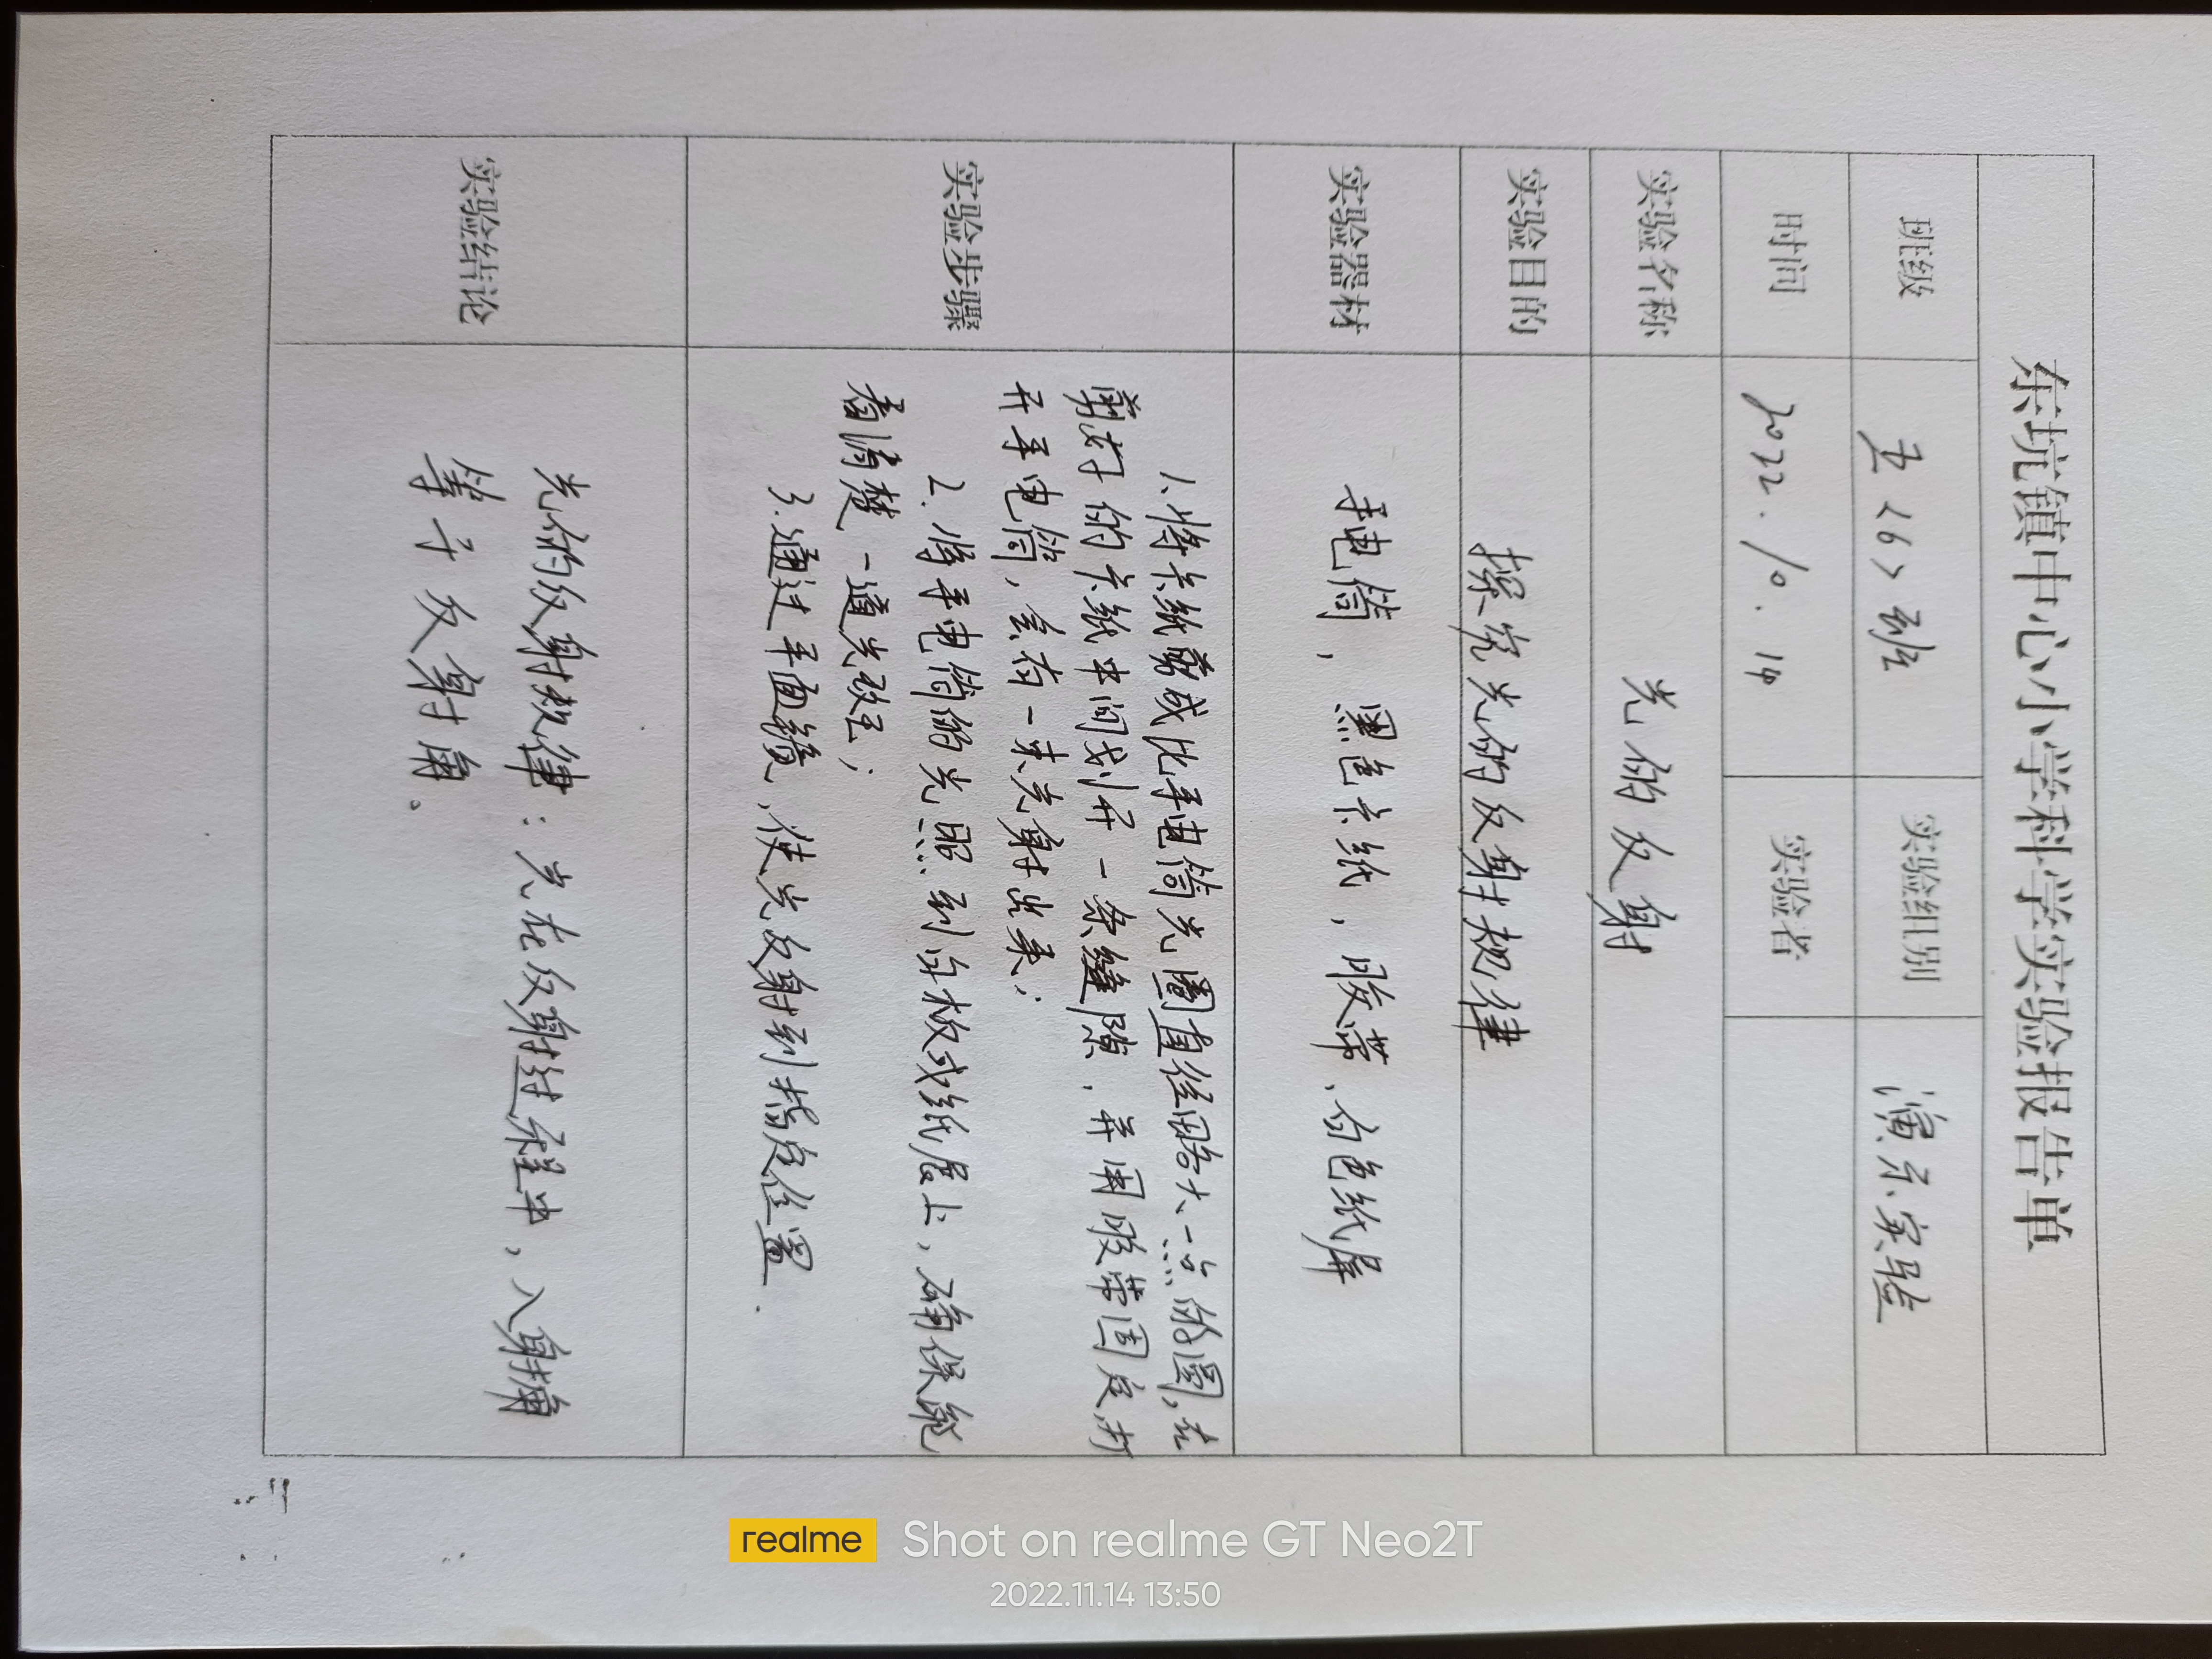 东坑镇中心小学科学实验报告单
班级 五<6>班 实验组别 演示实验
时间 2022.10.14 实验者
实验名称 光的反射
实验目的 探究光的反射规律
实验器材 手电筒，黑色卡纸，胶带、白色纸屏
实验步骤
1.将卡纸剪成比手电筒光圈直径略大一点的圆，在
剪好的卡纸中间划开一条缝隙，并用胶带固定，打
开手电筒，会有一束光射出来；
2.将手电筒的光照到白板或纸屏上，确保能
看清楚一道光线；
3.通过平面镜，使光反射到指定位置.
实验结论
光的反射规律：光在反射过程中，入射角
等于反射角。
realme Shot on realme GT Neo2T
2022.11.14 13:50